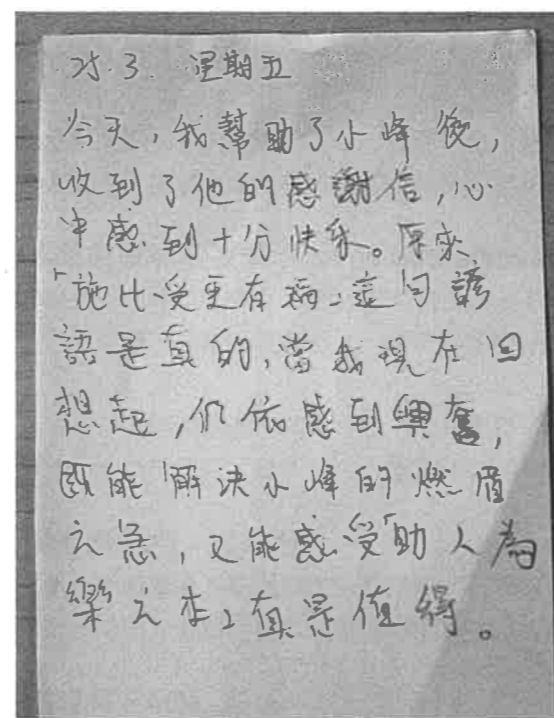 25.3 星期五
今天,我幫助了小峰後,
收到了他的感謝信,心
中感到十分快樂。原來,
「施比受更有福」這句諺
語是真的,當我現在回
想起,仍依感到興奮,
既能解決小峰的燃眉
之急,又能感受「助人為
樂之本」真是值得。